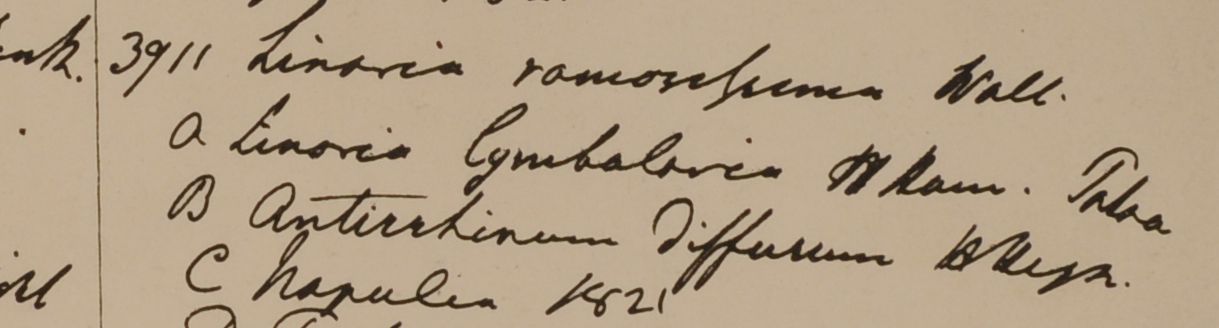 3911 Linaria ramosissima Wall.
a Linaria Cymbalaria H Ham.
B Antirrhinum diffusum H Heyn.
C Napulia 1821